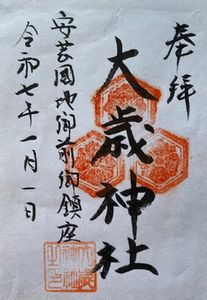 奉拝
大歳神社
安芸国地御前御鎮座
令和七年一月一日